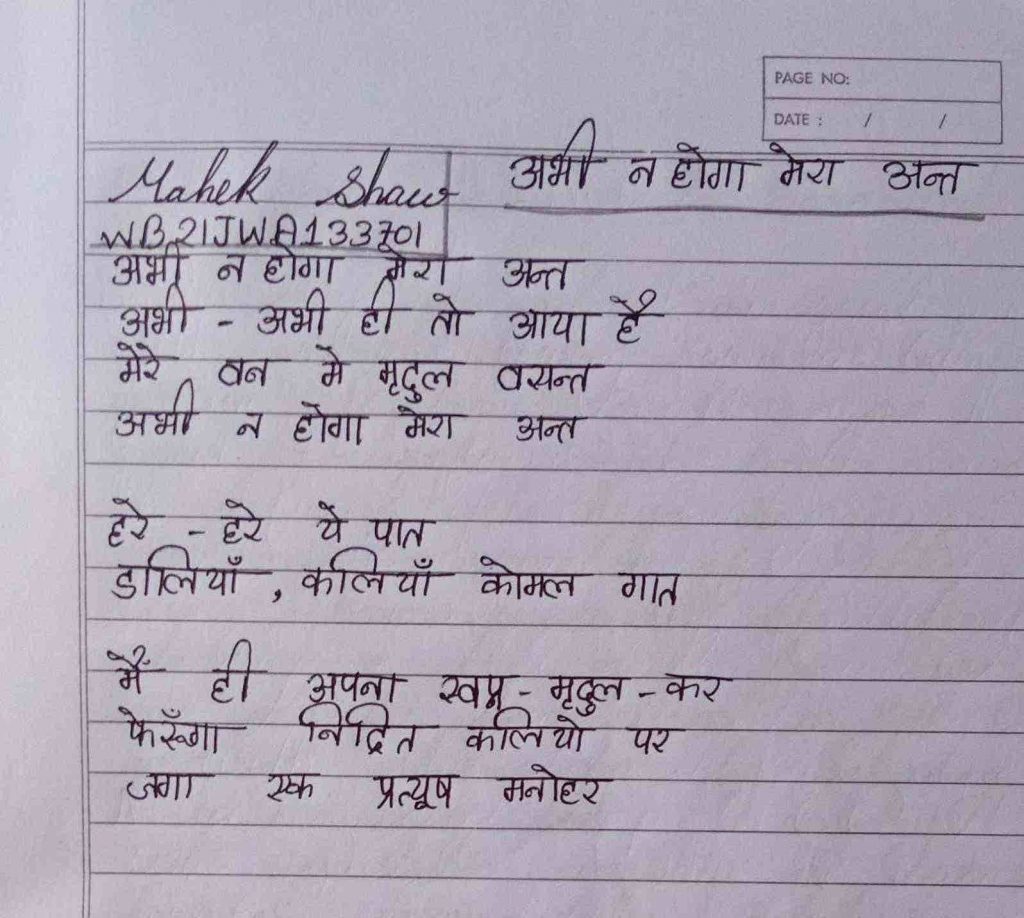 PAGE NO:
DATE : / /
Mahek Shaw
अभी न होगा मेरा अन्त
WB21JWA133701
अभी न होगा मेरा अन्त
अभी - अभी ही तो आया है
मेरे वन मे मृदुल वसन्त
अभी न होगा मेरा अन्त
हरे - हरे ये पात
डालियाँ , कलियाँ कोमल गात
मैं ही अपना स्वप्न - मृदुल - कर
फेरूँगा निद्रित कलियो पर
जगा एक प्रत्यूष मनोहर